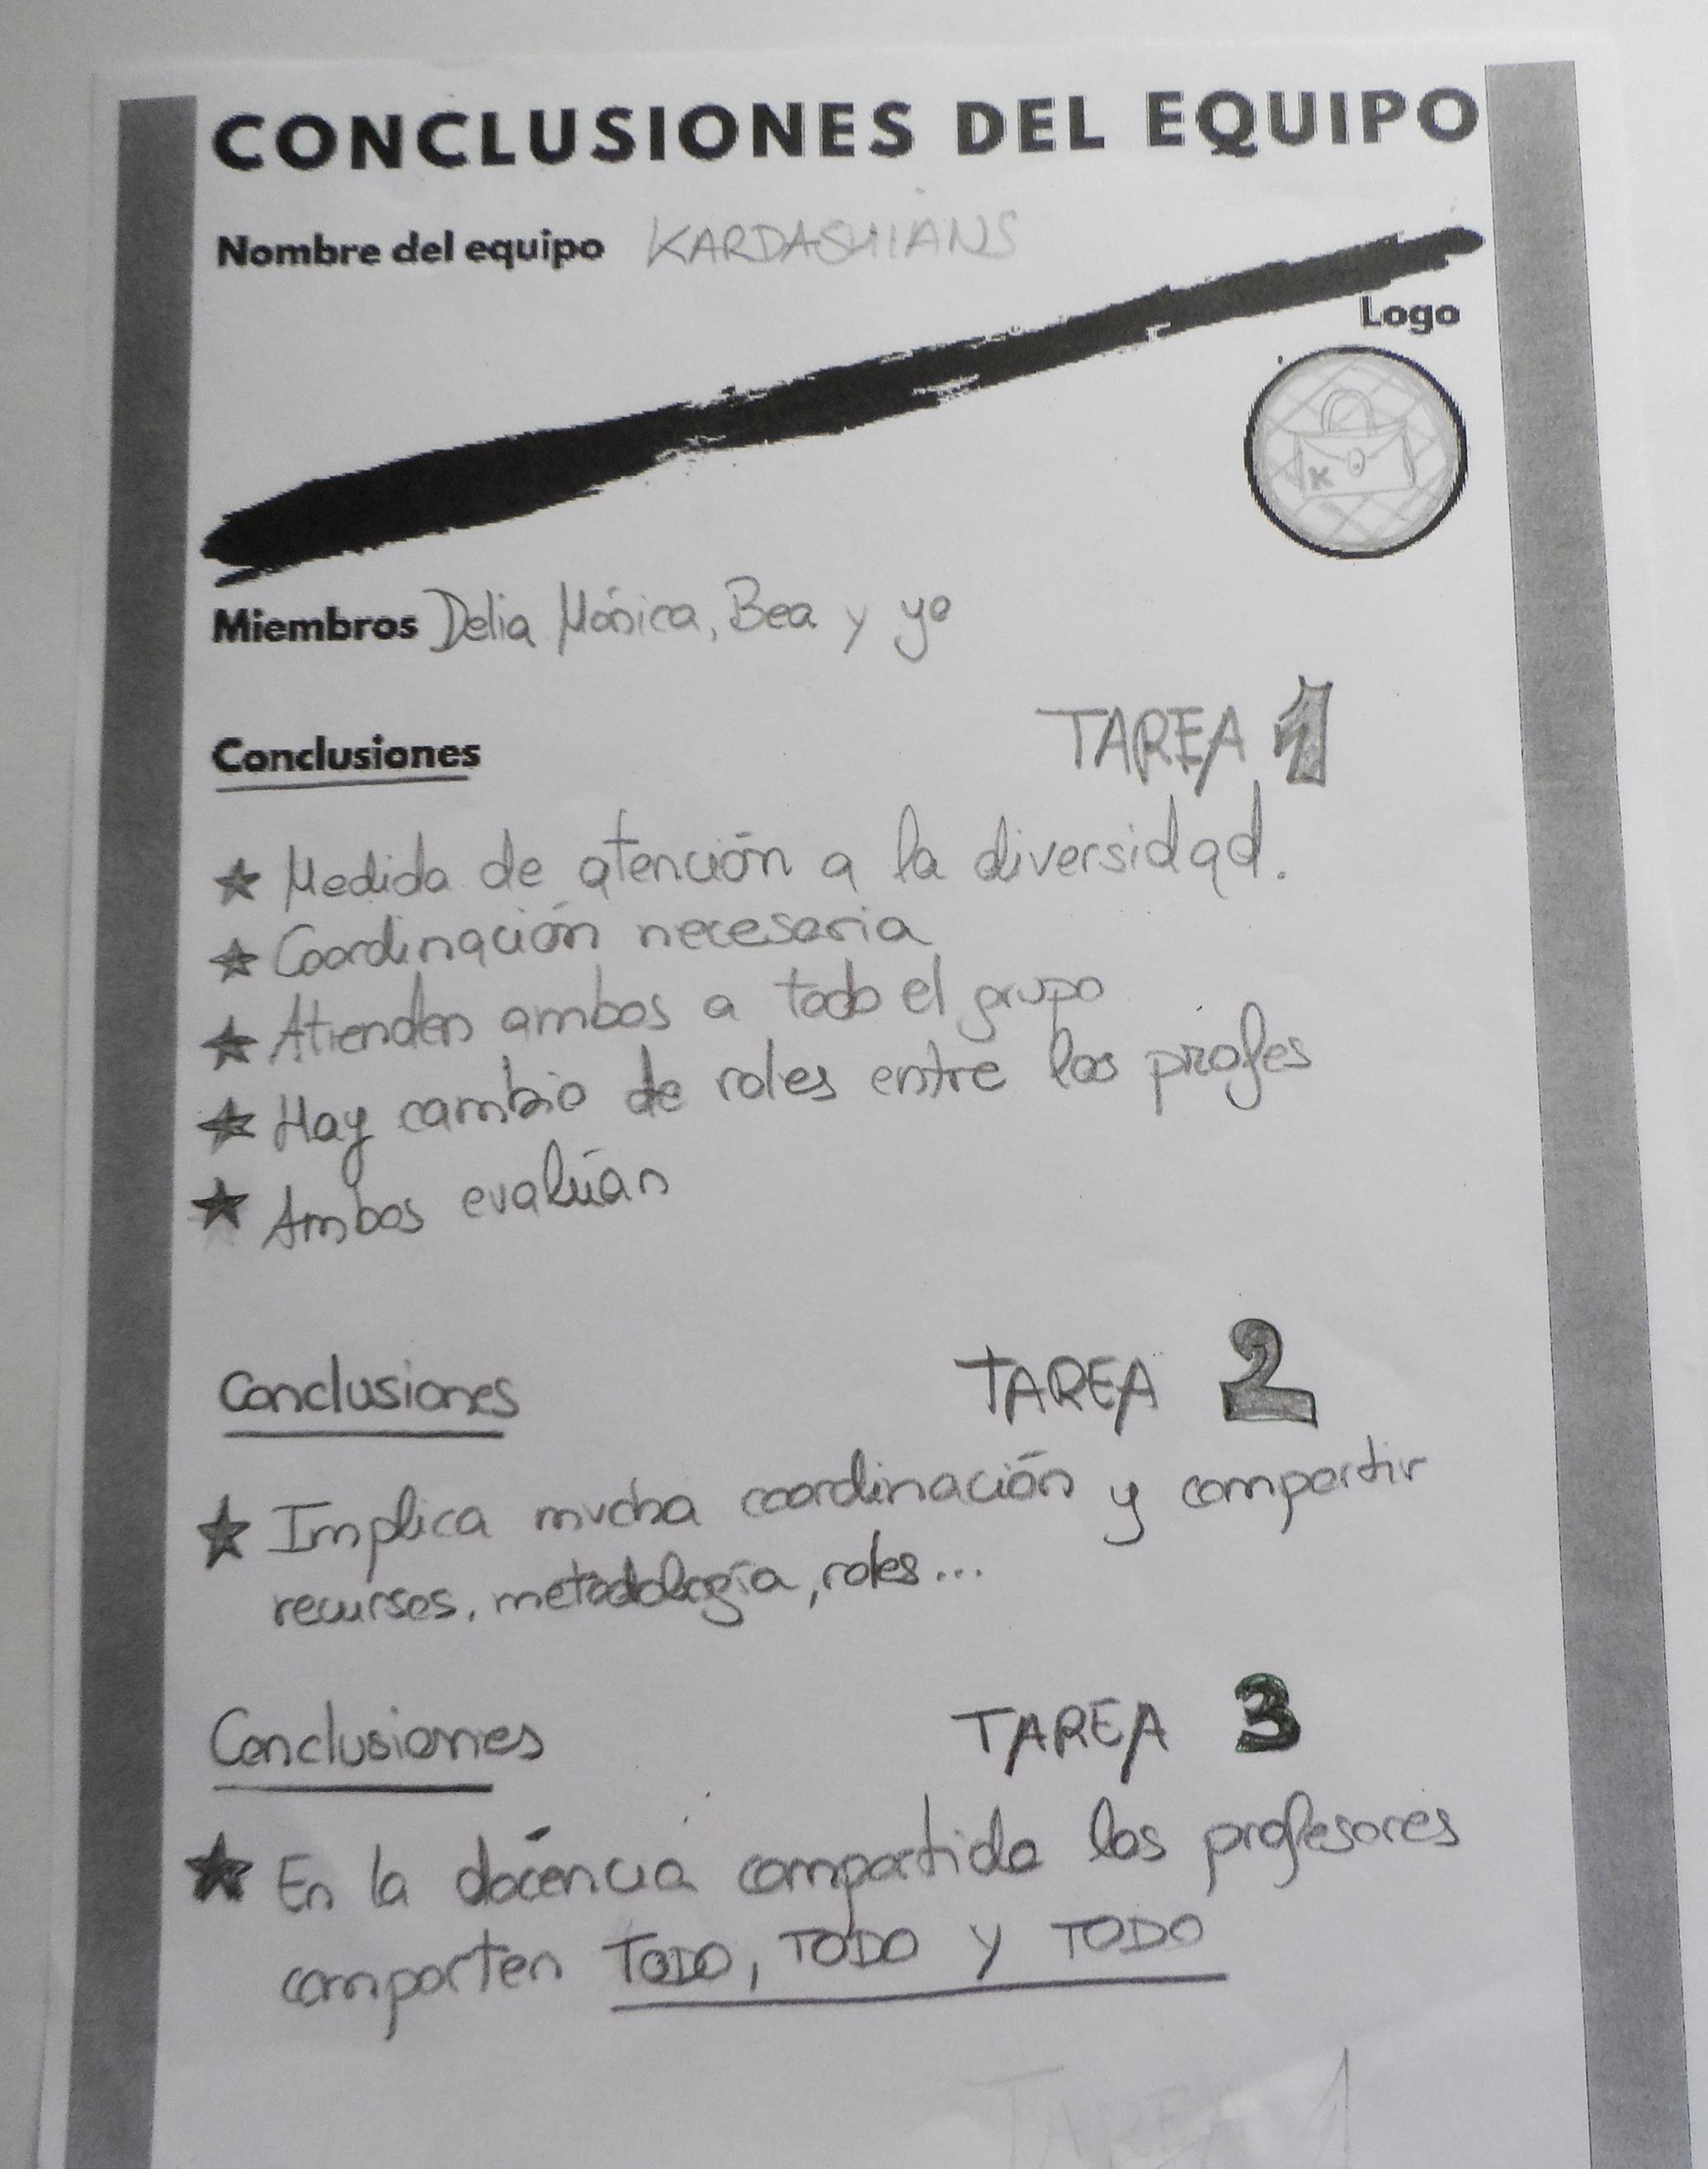 CONCLUSIONES DEL EQUIPO
Nombre del equipo KARDASHIANS
Logo
K
Miembros Delia Mónica, Bea y yo
TAREA 1
Conclusiones
★ Medida de atención a la diversidad.
★ Coordinación necesaria
★ Atienden ambos a todo el grupo
★ Hay cambio de roles entre los profes
★ Ambos evalúan
Conclusiones TAREA 2
★ Implica mucha coordinación y compartir
recursos, metodología, roles...
Conclusiones TAREA 3
★ En la docencia compartida los profesores
comparten TODO, TODO y TODO
TAREA 1